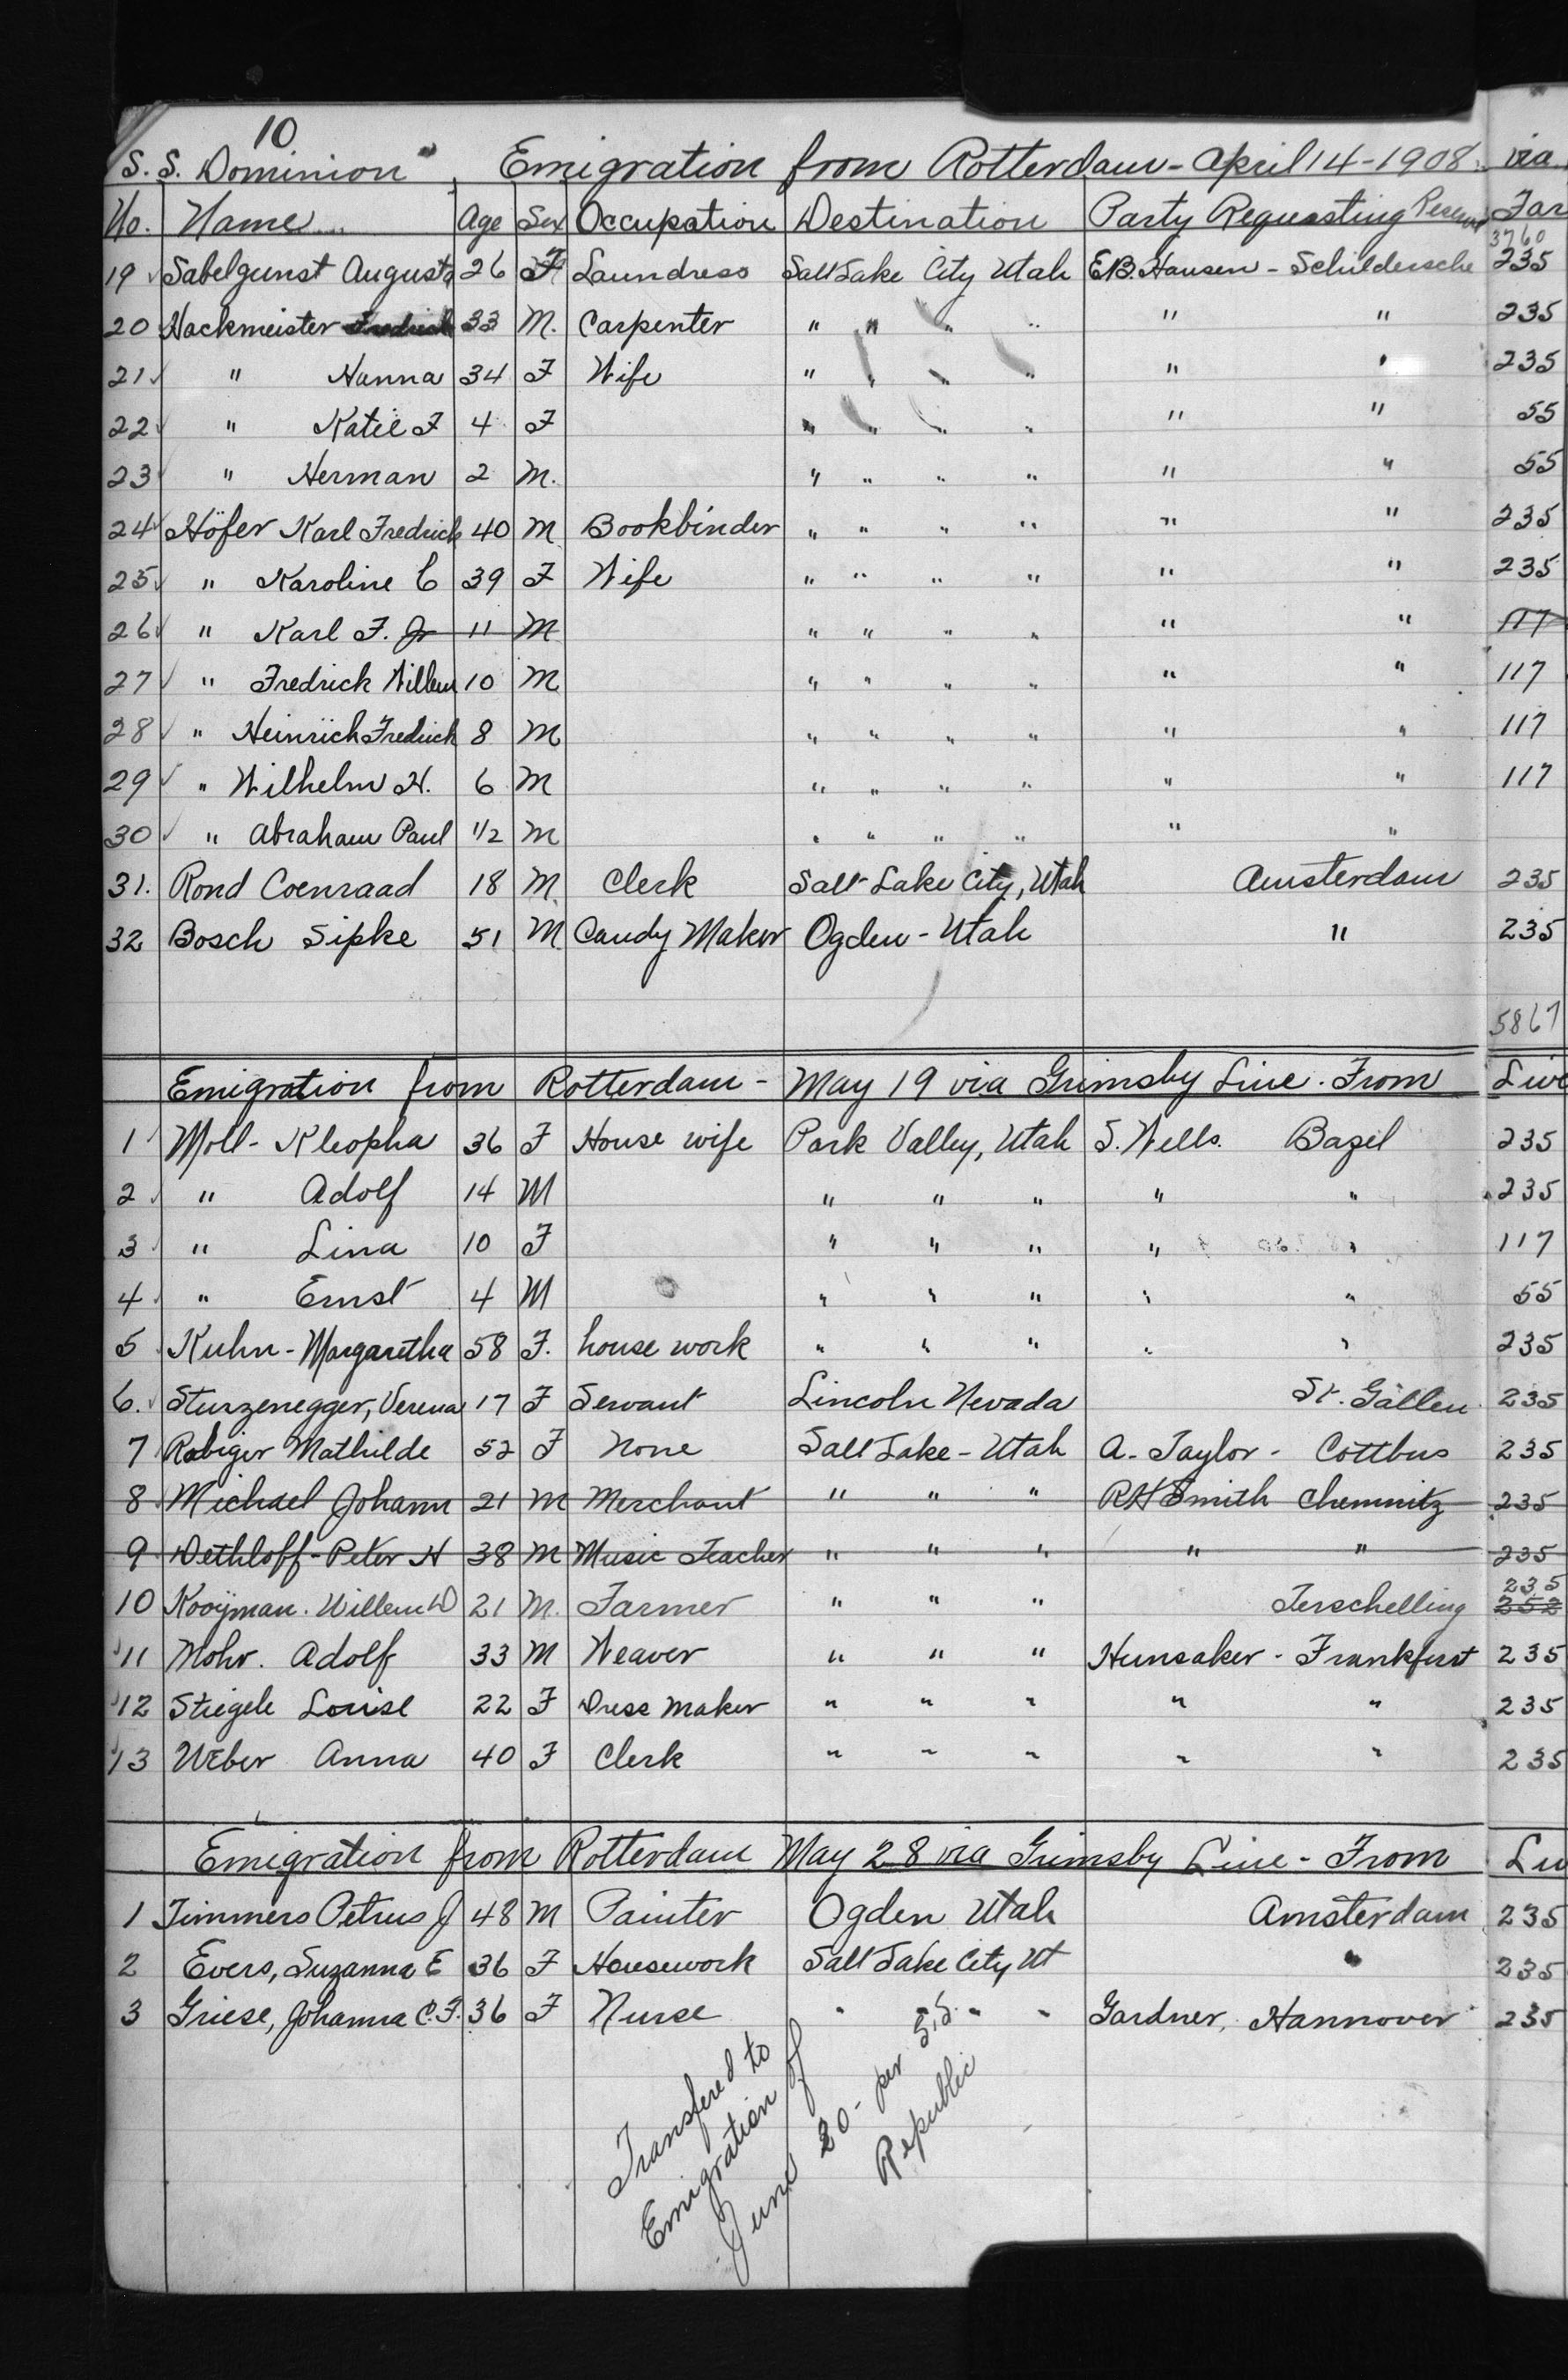 10
S.S. Dominion", Emigration from Rotterdam - April 14 - 1908. via
No. Name Age Sex Occupation Destination Party Requesting Far
3760
19 Sabelgunst Augusta 26 F Laundress Salt Lake City Utah E.B. Hansen - Schildersche 235
20 Hackmeister Fredrick 33 M. Carpenter " " " " " " 235
21 " Hanna 34 F Wife " " " " " " 235
22 " Katie F 4 F " " " " " " 55
23 " Herman 2 M. " " " " " " 55
24 Höfer Karl Fredrick 40 M Bookbinder " " " " " " 235
25 " Karoline C 39 F Wife " " " " " " 235
26 " Karl F. Jr 11 M " " " " " " 117
27 " Fredrick Willem 10 M " " " " " " 117
28 " Heinrich Fredrick 8 M " " " " " " 117
29 " Wilhelm H. 6 M " " " " " " 117
30 " Abraham Paul 1/2 M " " " " " "
31. Rond Coenraad 18 M. Clerk Salt Lake City, Utah Amsterdam 235
32 Bosch Sipke 51 M Candy Maker Ogden - Utah " 235
5867
Emigration from Rotterdam - May 19 via Grimsby Line. From Live
1 Moll - Kleopha 36 F House wife Park Valley, Utah S. Wells. Bazel 235
2 " Adolf 14 M " " " " " 235
3 " Lina 10 F " " " " " 117
4 " Ernst 4 M " " " " " 55
5 Kuhn - Margaretha 58 F. house work " " " " " 235
6. Sturzenegger, Verena 17 F Servant Lincoln Nevada St. Gallen 235
7 Robiger Mathilde 52 F None Salt Lake - Utah A. Taylor - Cottbus 235
8 Michael Johann 21 M Merchant " " " R H Smith Chemnitz 235
9 Dethloff - Peter H 38 M Music Teacher " " " " " 235
235
10 Kooijman. Willem D 21 M. Farmer " " " Terschelling 252
11 Mohr. Adolf 33 M Weaver " " " Hunsaker - Frankfurt 235
12 Stiegele Louise 22 F Dress maker " " " " " 235
13 Weber Anna 40 F Clerk " " " " " 235
Emigration from Rotterdam May 28 via Grimsby Line - From Liv
1 Timmers Petrus J 48 M Painter Ogden Utah Amsterdam 235
2 Evers, Suzanna E 36 F Housework Salt Lake City Ut " 235
3 Griese, Johanna C.F. 36 F Nurse " " " Gardner, Hannover 235
Transfered to
Emigration of
June 20 - per S.S.
Republic